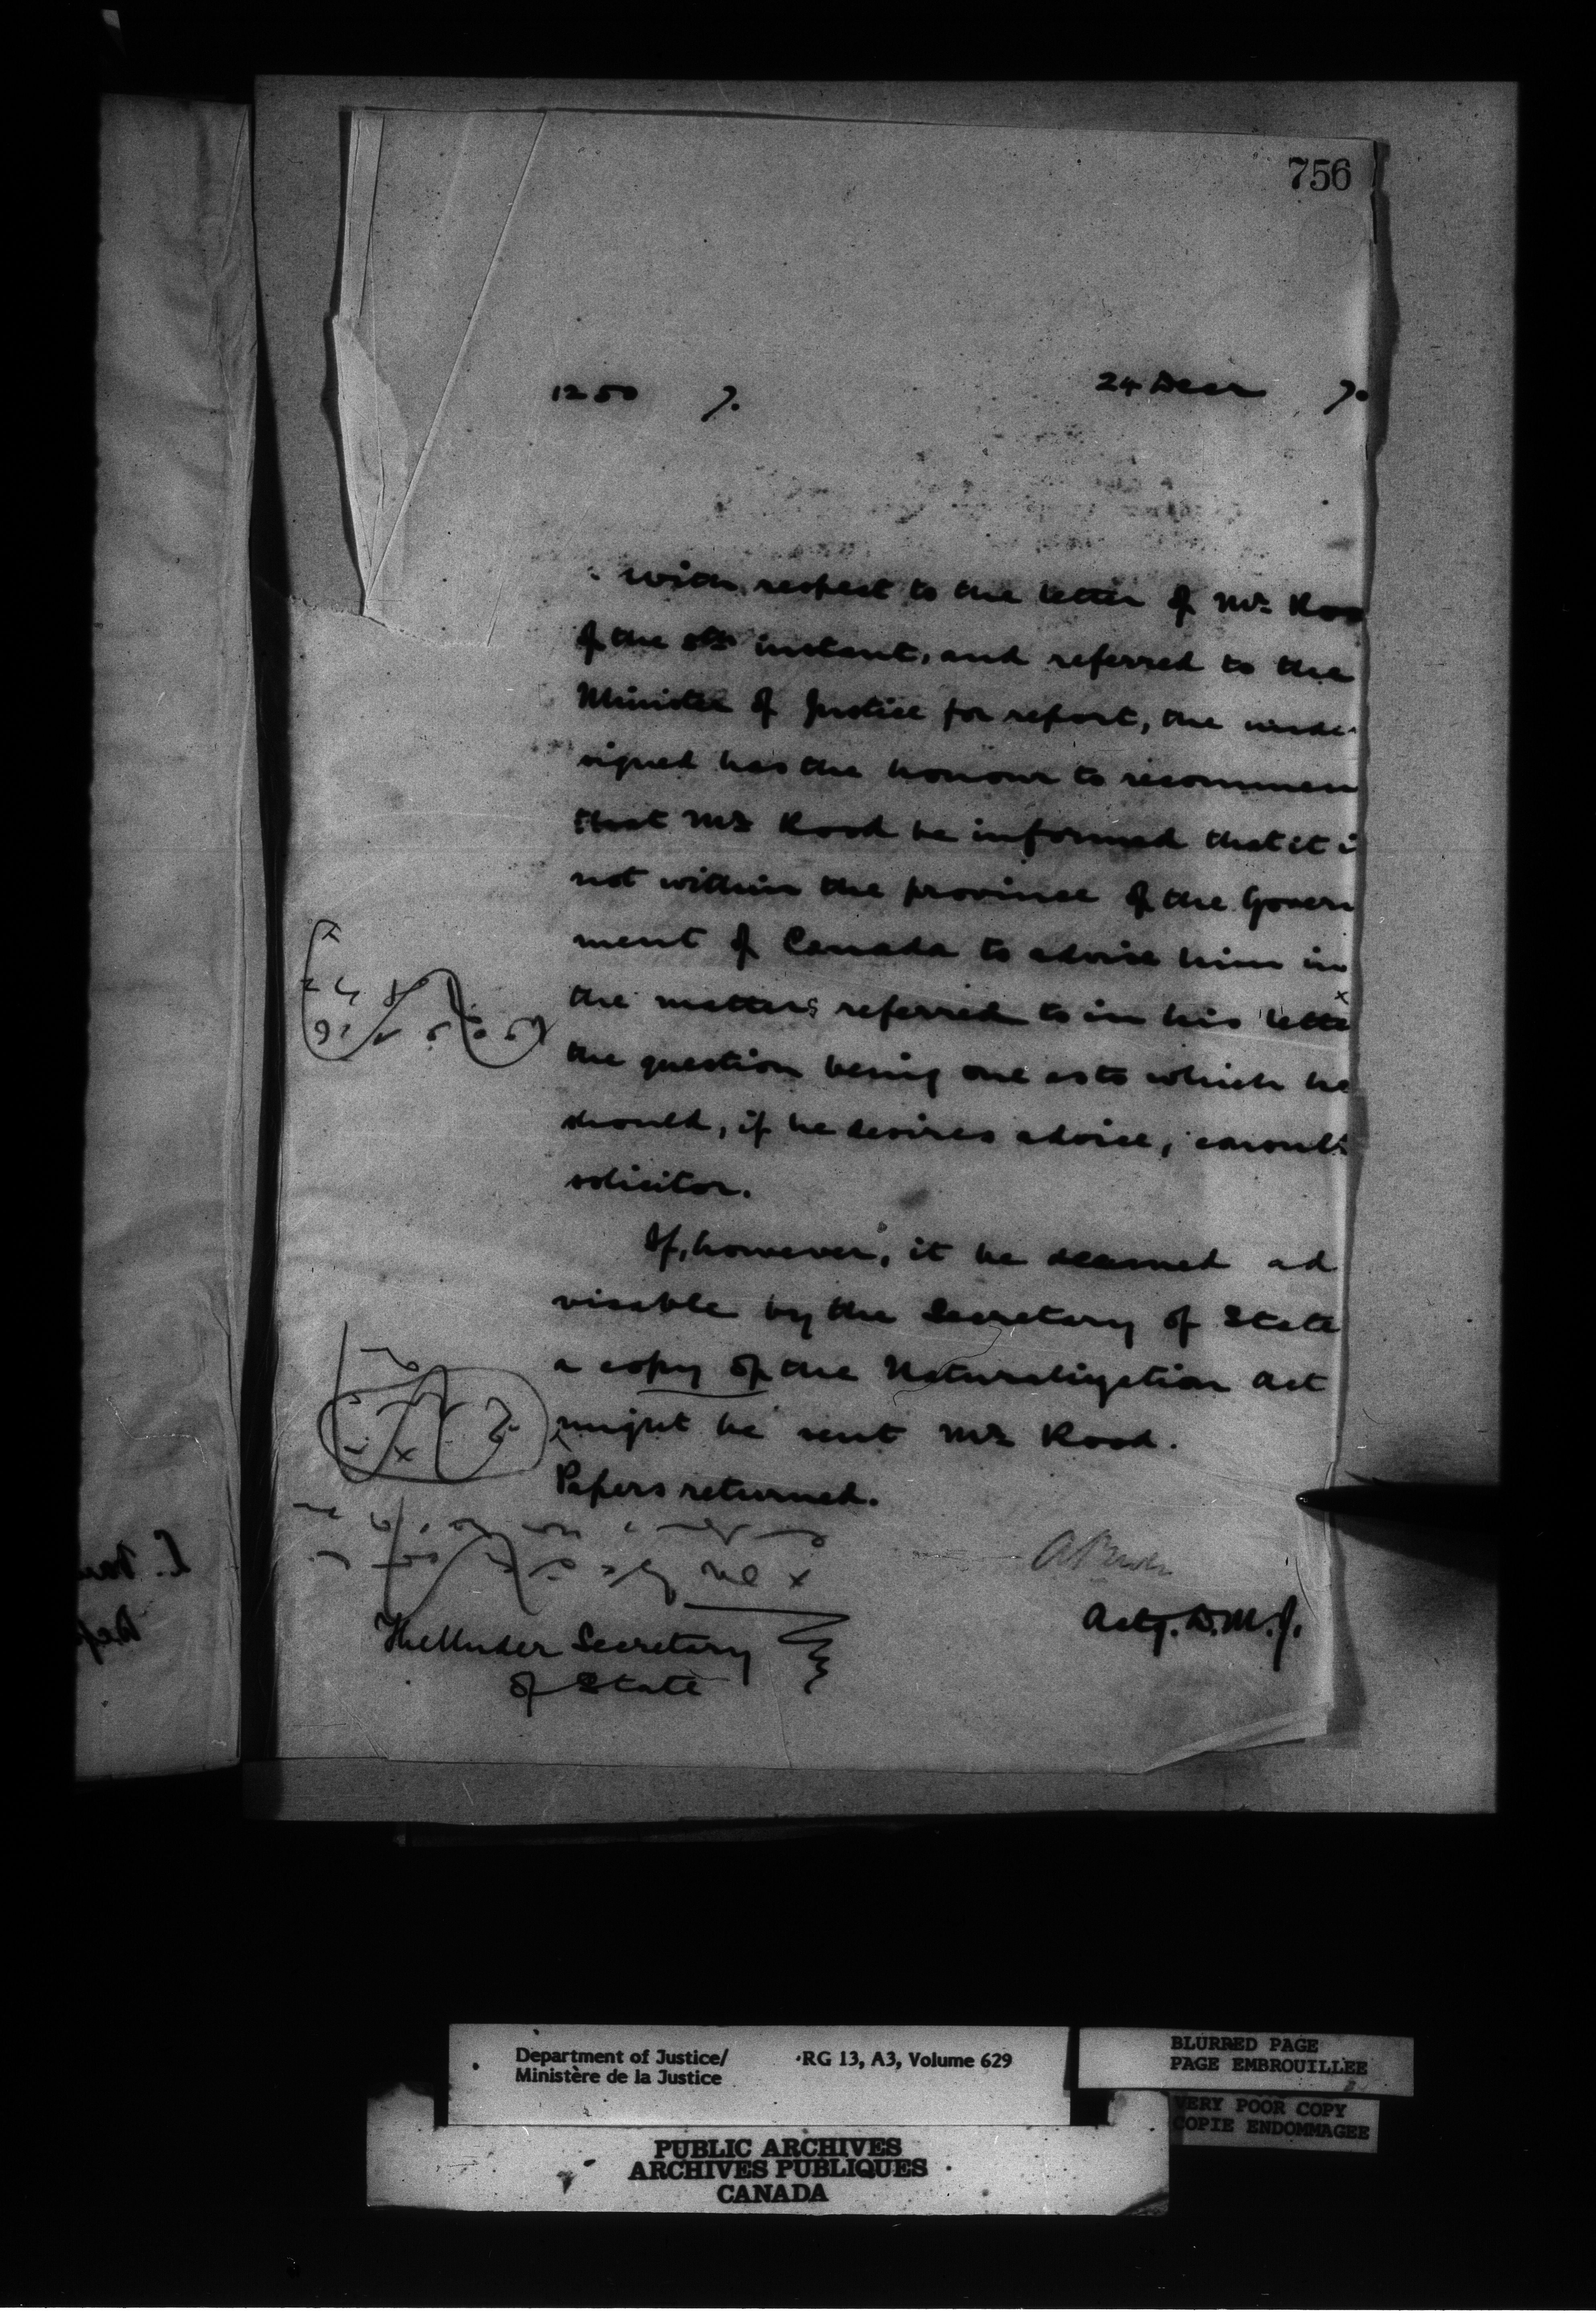 756
1250 7. 24 Decr 7.
With respect to the letter of Mr. Roo
of the instant, and referred to the
Minister of Justice for report, the unde
signed has the honour to recommen
that Mr Rood be informed that it i
not within the province of the Govern
ment of Canada to advise him in
the matters referred to in his lette
the question being one as to which he
should, if he desires advice, consult
solicitor.
If, however, it be deemed ad
visable by the Secretary of State
a copy of the Naturalization Act
might be sent Mr Rood.
Papers returned.
Actg. D.M.J.
The Under Secretary
of State
Department of Justice/ RG 13, A3, Volume 629
Ministère de la Justice
BLURRED PAGE
PAGE EMBROUILLEE
VERY POOR COPY
COPIE ENDOMMAGEE
PUBLIC ARCHIVES
ARCHIVES PUBLIQUES
CANADA